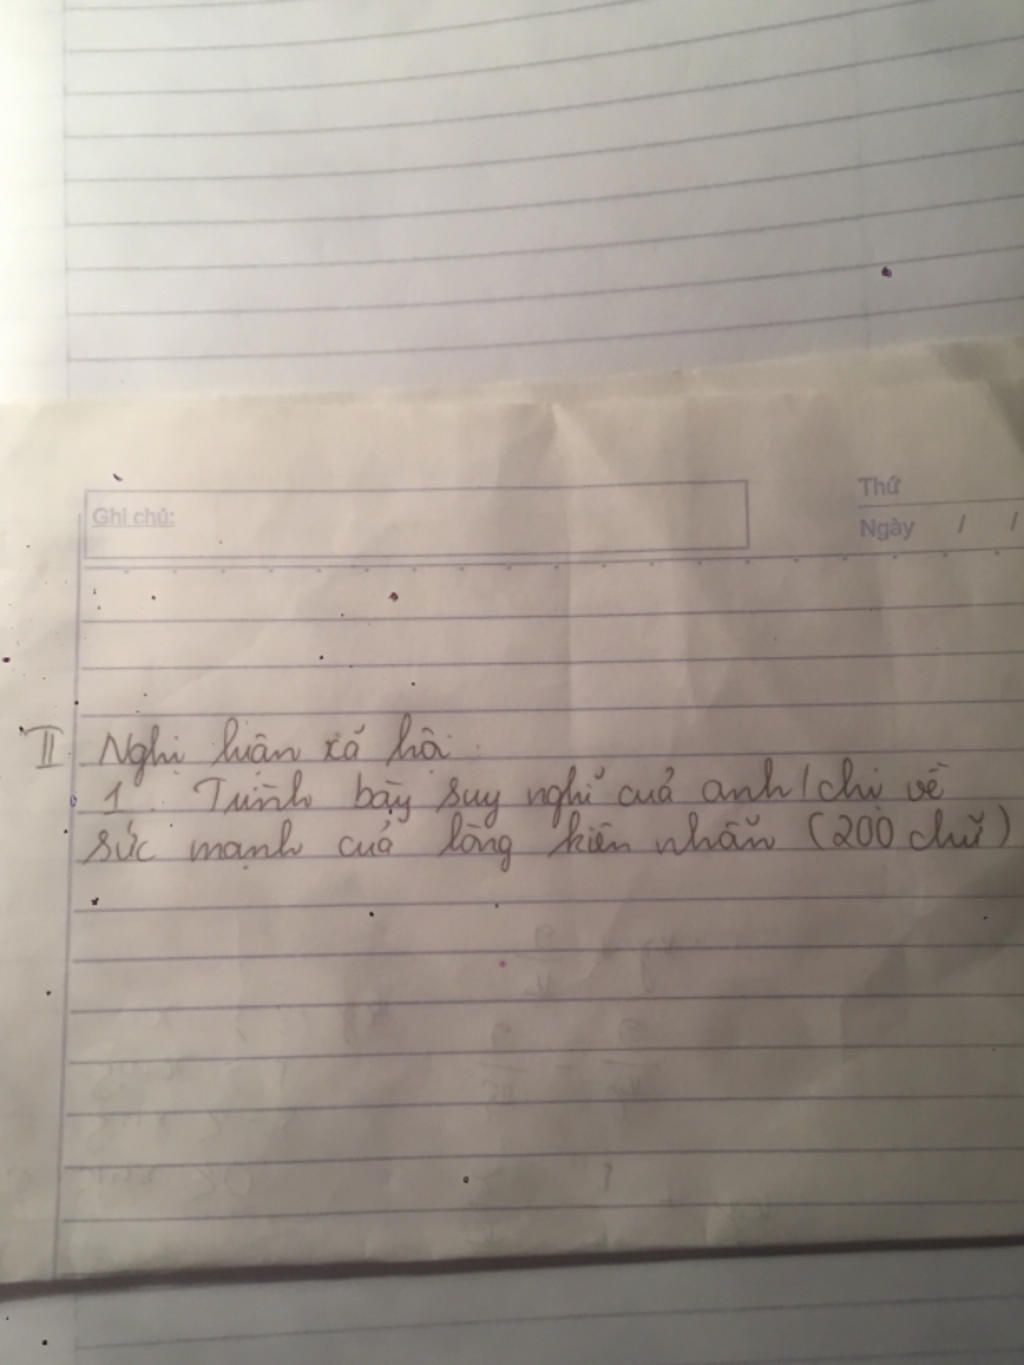 Ghi chú:
Thứ
Ngày / /
II. Nghị luận xã hội
1. Trình bày suy nghĩ của anh/chị về
sức mạnh của lòng kiên nhẫn (200 chữ)